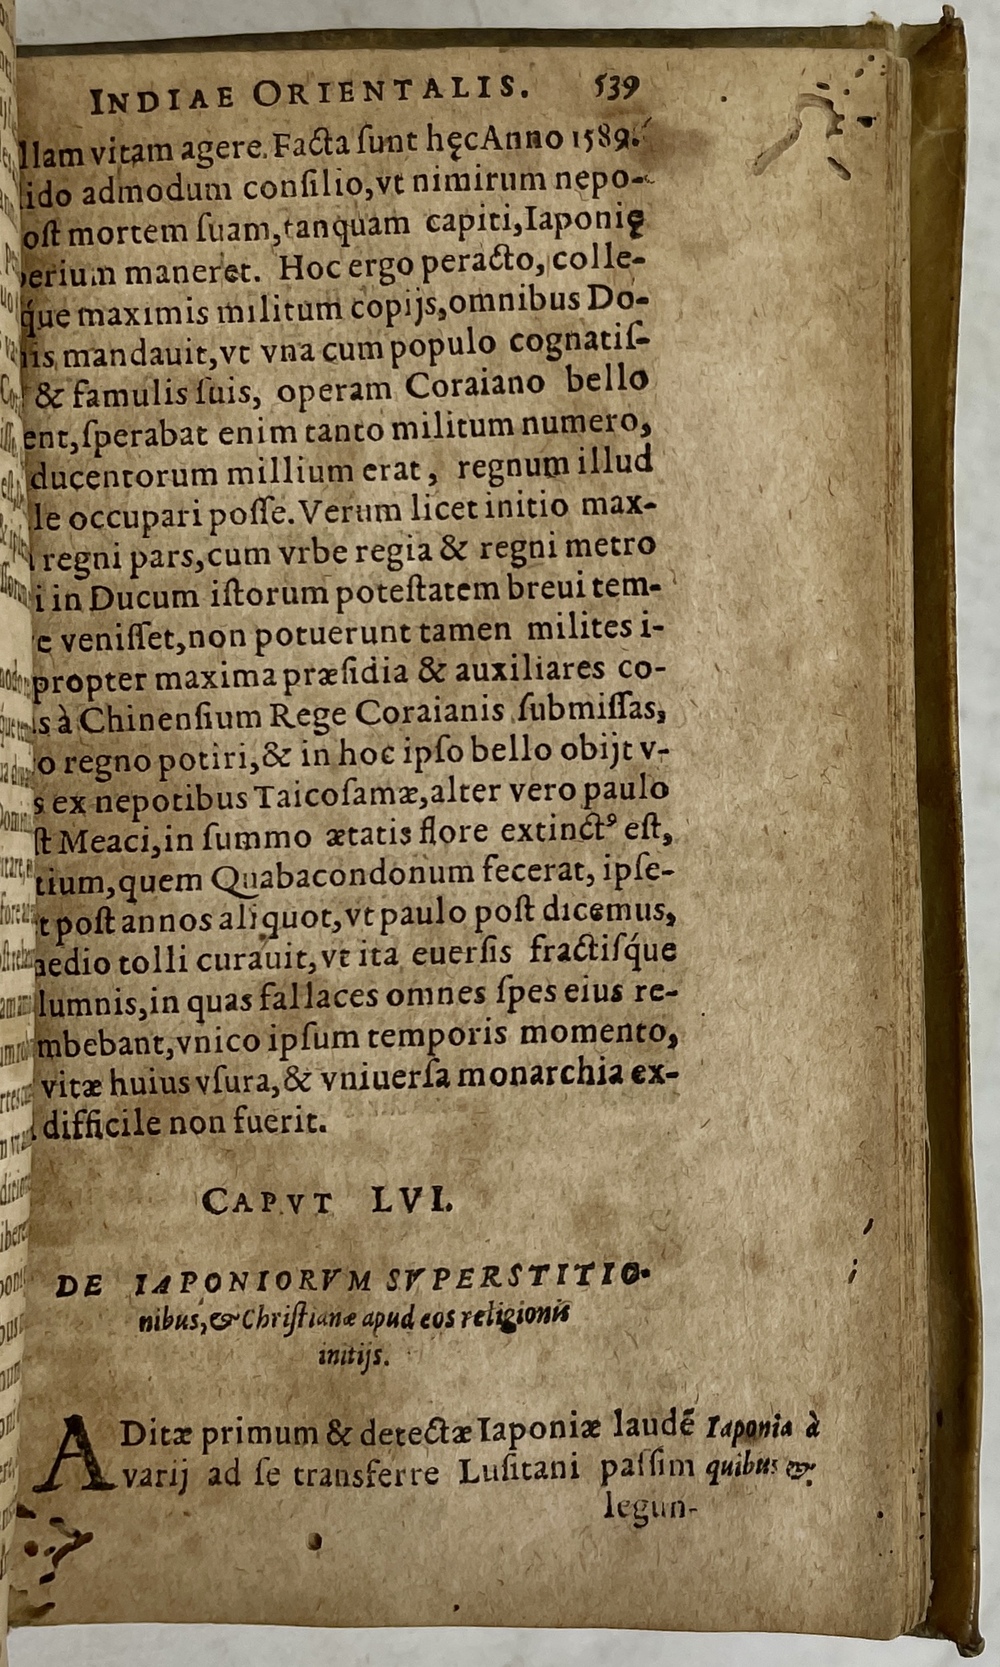 INDIAE ORIENTALIS. 539
llam vitam agere. Facta ſunt hęc Anno 1589.
ido admodum conſilio, vt nimirum nepo-
oſt mortem ſuam, tanquam capiti, Iaponię
erium maneret. Hoc ergo peracto, colle-
q́ue maximis militum copijs, omnibus Do-
is mandauit, vt vna cum populo cognatiſ-
& famulis ſuis, operam Coraiano bello
ent, ſperabat enim tanto militum numero,
ducentorum millium erat, regnum illud
le occupari poſſe. Verum licet initio max-
regni pars, cum vrbe regia & regni metro
i in Ducum iſtorum poteſtatem breui tem-
e veniſſet, non potuerunt tamen milites i-
propter maxima præſidia & auxiliares co-
s à Chinenſium Rege Coraianis ſubmiſſas,
o regno potiri, & in hoc ipſo bello obijt v-
s ex nepotibus Taicoſamæ, alter vero paulo
ſt Meaci, in ſummo ætatis flore extinctꝰ eſt,
tium, quem Quabacondonum fecerat, ipſe-
t poſt annos aliquot, vt paulo poſt dicemus,
edio tolli curauit, vt ita euerſis fractiſq́ue
lumnis, in quas fallaces omnes ſpes eius re-
mbebant, vnico ipſum temporis momento,
vitæ huius vſura, & vniuerſa monarchia ex-
difficile non fuerit.
CAPVT LVI.
DE IAPONIORVM SVPERSTITIO-
nibus, & Chriſtianæ apud eos religionis
initijs.
ADitæ primum & detectæ Iaponiæ laudẽ Iaponia à
varij ad ſe transferre Luſitani paſſim quibus &
legun-